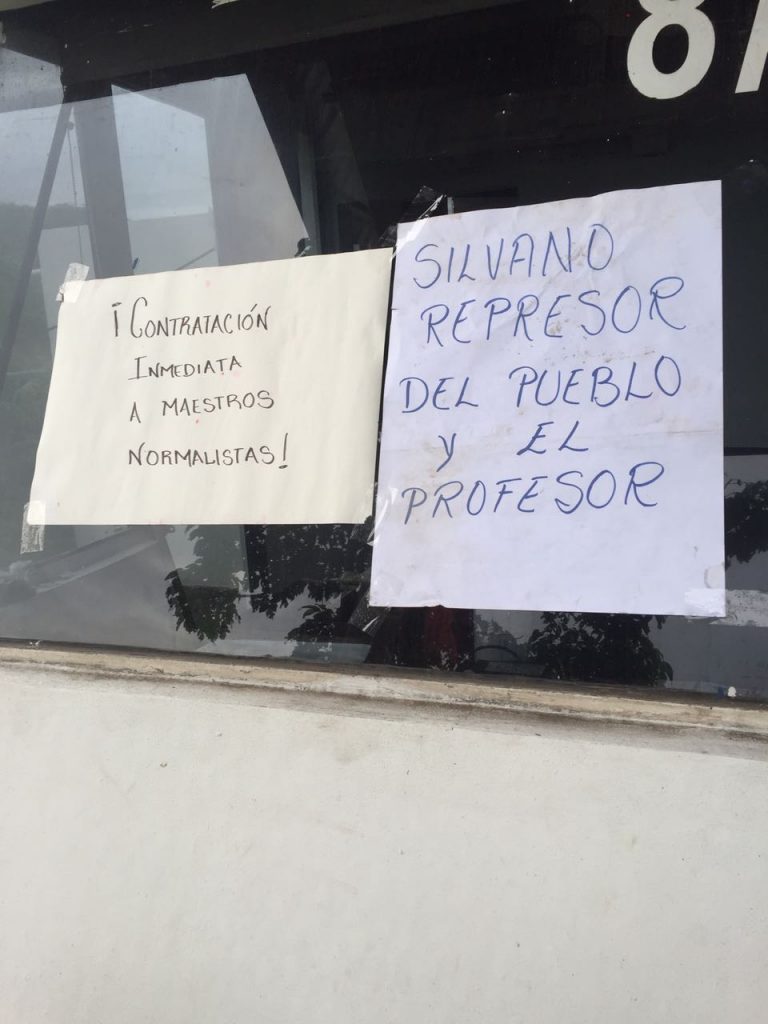 ¡CONTRATACIÓN
INMEDIATA
A MAESTROS
NORMALISTAS!
SILVANO
REPRESOR
DEL PUEBLO
y EL
PROFESOR